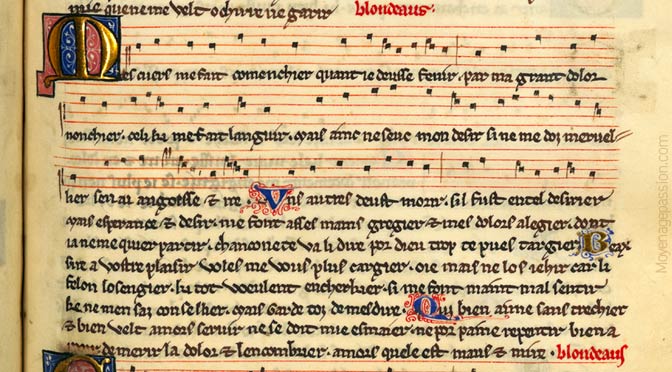 mie que ne me velt ochirre ne garir blondeaus.
Mes cuers me fait comenchier quant ie deusse fenir. par ma grant dolor
nonchier. celi ki me fait languir. mais ainc ne seuc mon desir si ne me doi mervel-
lier sen ai angoisse & ire. Uns autres deust morir. sil fust en tel desirier
mais esperance & desir. me font asses mains gregier & mes dolors alegier. dont
ia ne me quier partir. chanconete va li dire por dieu trop te pues targier Beax
sire a vostre plaisir voles me vous plus cargier. oie mais ne los iehir car li
felon losengier. ki tot voelent encherkier. si me font maint mal sentir
ke ne men sai conseillier. mais garde toi de mesdire. Qui bien aime sans trechier
& bien velt amors servir ne se doit mie esmaier. ne por paine repentir bien a
de merir la dolor & lencombrier. amors quele est maus & mire. blondeaus
Moyenagepassion.com